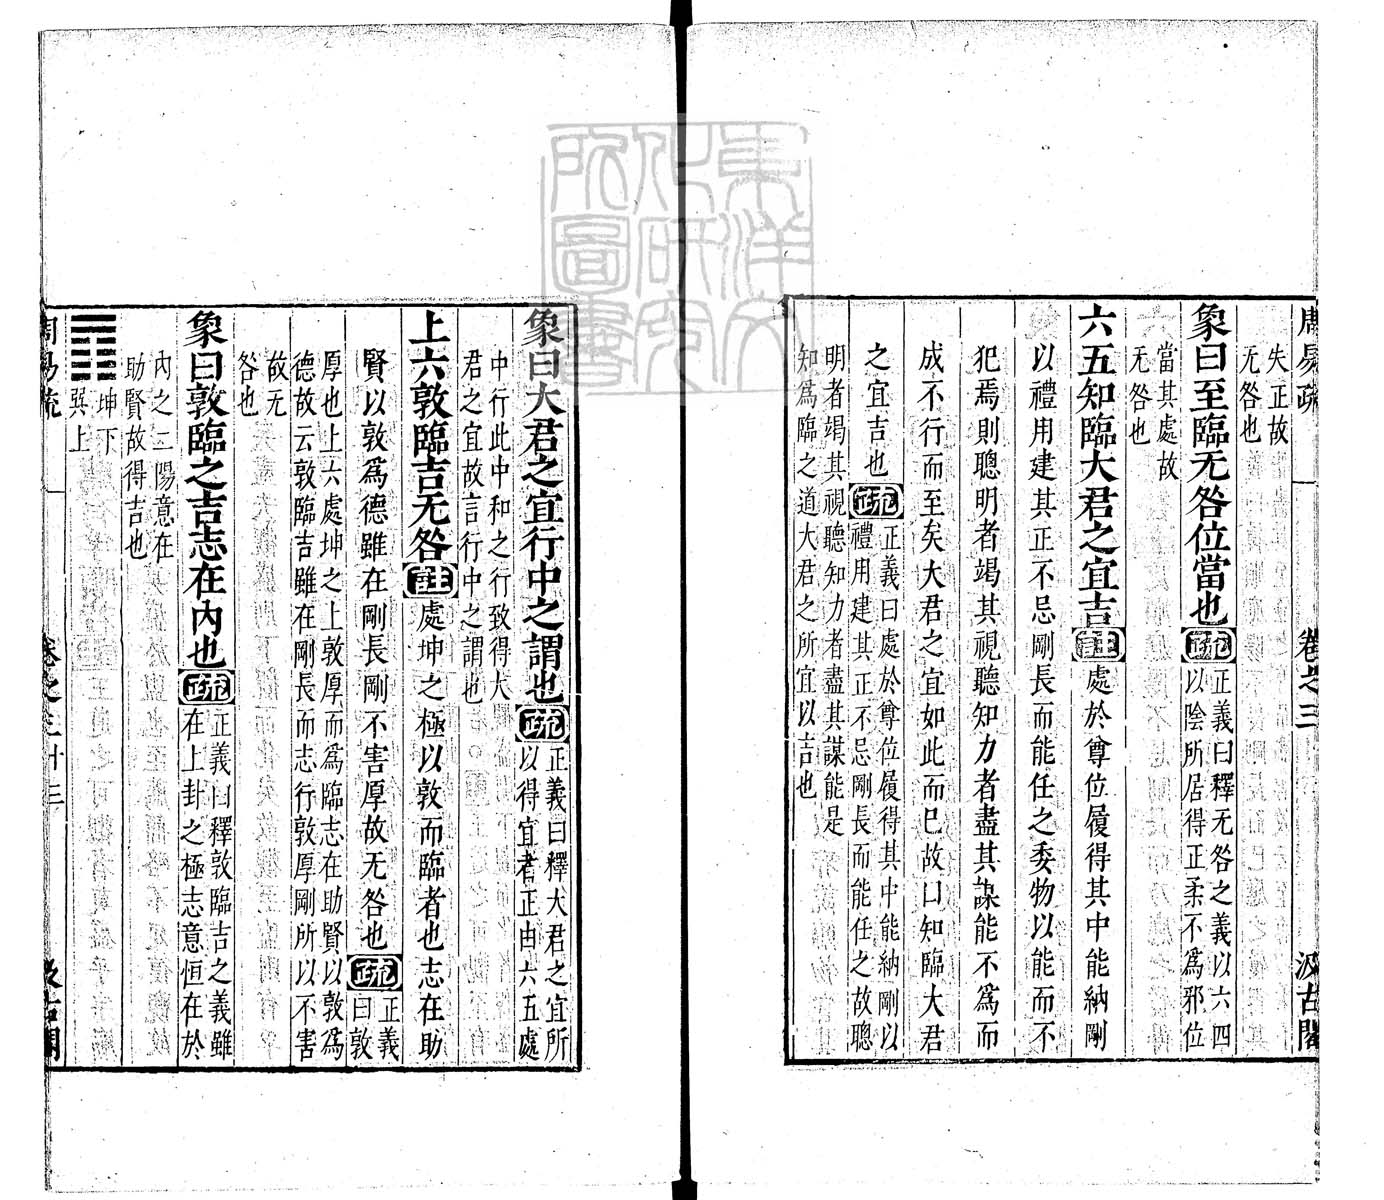 周易疏
卷之三
汲古閣
失正故
无咎也
象曰至臨无咎位當也疏正義曰釋无咎之義以六四
以陰所居得正柔不為邪位
當其處故
无咎也
六五知臨大君之宜吉註處於尊位履得其中能納剛
以禮用建其正不忌剛長而能任之委物以能而不
犯焉則聰明者竭其視聽知力者盡其謀能不為而
成不行而至矣大君之宜如此而已故曰知臨大君
之宜吉也疏正義曰處於尊位履得其中能納剛以
禮用建其正不忌剛長而能任之故聰
明者竭其視聽知力者盡其謀能是
知為臨之道大君之所宜以吉也
象曰大君之宜行中之謂也疏正義曰釋大君之宜所
以得宜者正由六五處
中行此中和之行致得大
君之宜故言行中之謂也
上六敦臨吉无咎註處坤之極以敦而臨者也志在助
賢以敦為德雖在剛長剛不害厚故无咎也疏正義
曰敦
厚也上六處坤之上敦厚而為臨志在助賢以敦為
德故云敦臨吉雖在剛長而志行敦厚剛所以不害
故无
咎也
象曰敦臨之吉志在內也疏正義曰釋敦臨吉之義雖
在上卦之極志意恒在於
內之二陽意在
助賢故得吉也
坤下
巽上
周易疏
卷之三
十三
汲古閣
東洋文
化研究
所圖書